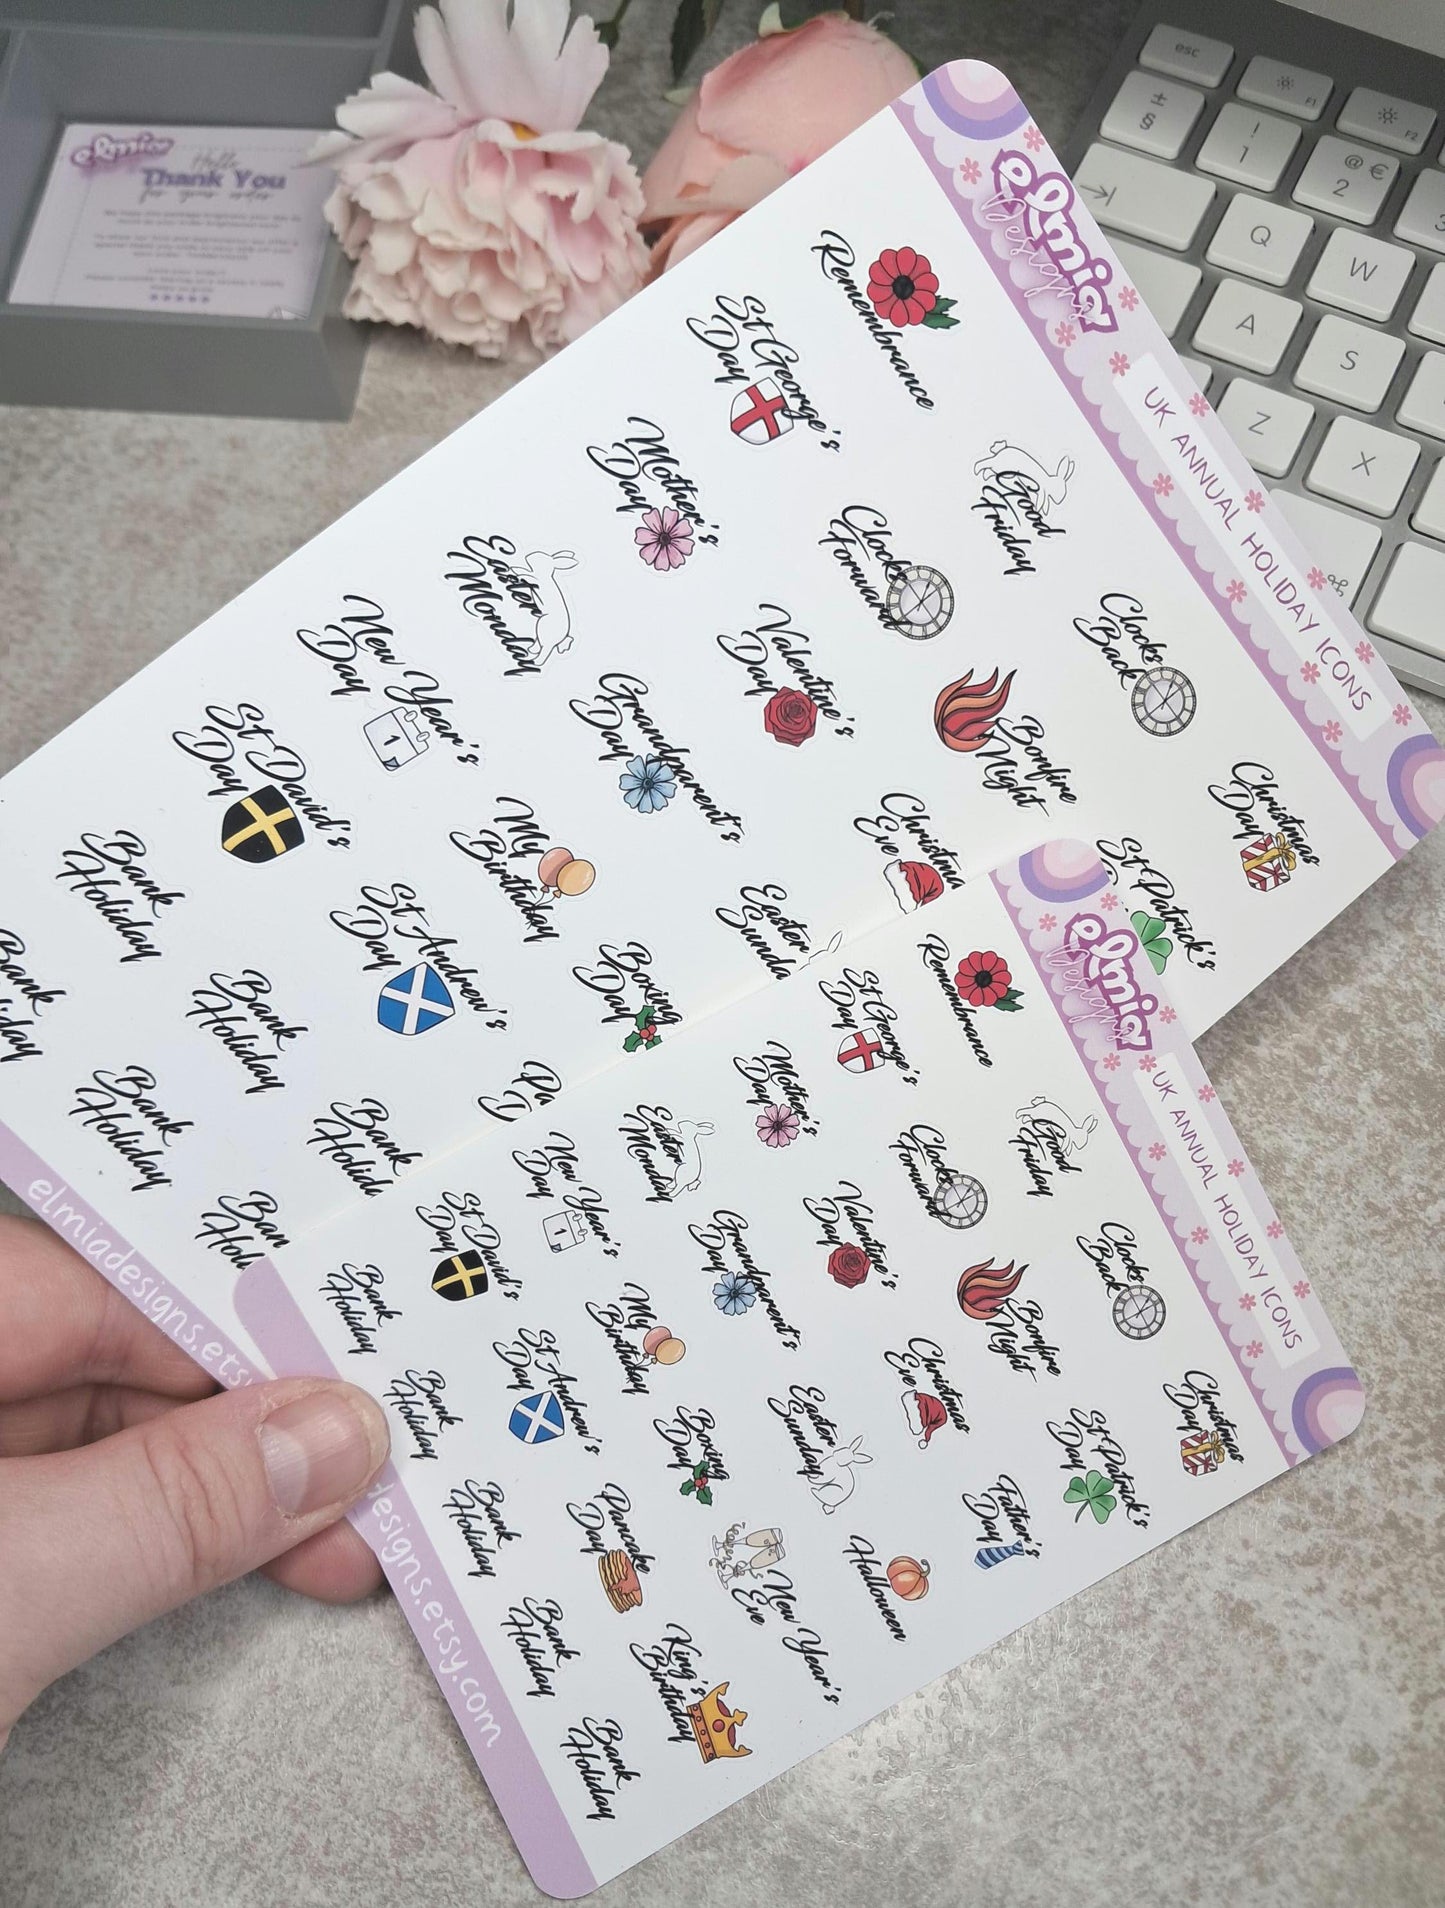 elmia
Hello
Thank You
for your order
esc
F1
F2
±
§
!
1
@ €
2
3
Q
W
A
S
Z
X
⌘
elmia
Designs
UK ANNUAL HOLIDAY ICONS
Remembrance
St George's
Day
Mother's
Day
Good
Friday
Easter
Monday
Clocks
Forward
New Year's
Day
1
Valentine's
Day
Clocks
Back
St David's
Day
Grandparent's
Day
Bonfire
Night
Bank
Holiday
My
Birthday
Christmas
Eve
Christmas
Day
Bank
Holiday
St Andrew's
Day
Easter
Sunda
St Patrick's
Bank
Holiday
Boxing
Day
Bank
Holiday
Bank
Holid
Pa
D
Ban
Holi
elmiadesigns.etsy.
elmia
Designs
UK ANNUAL HOLIDAY ICONS
Remembrance
St George's
Day
Mother's
Day
Good
Friday
Easter
Monday
Clocks
Forward
New Year's
Day
1
Valentine's
Day
Clocks
Back
St David's
Day
Grandparent's
Day
Bonfire
Night
Bank
Holiday
My
Birthday
Christmas
Eve
Christmas
Day
St Andrew's
Day
Easter
Sunday
St Patrick's
Day
Bank
Holiday
Boxing
Day
Father's
Day
Bank
Holiday
Pancake
Day
New Year's
Eve
Halloween
Bank
Holiday
King's
Birthday
Bank
Holiday
designs.etsy.com